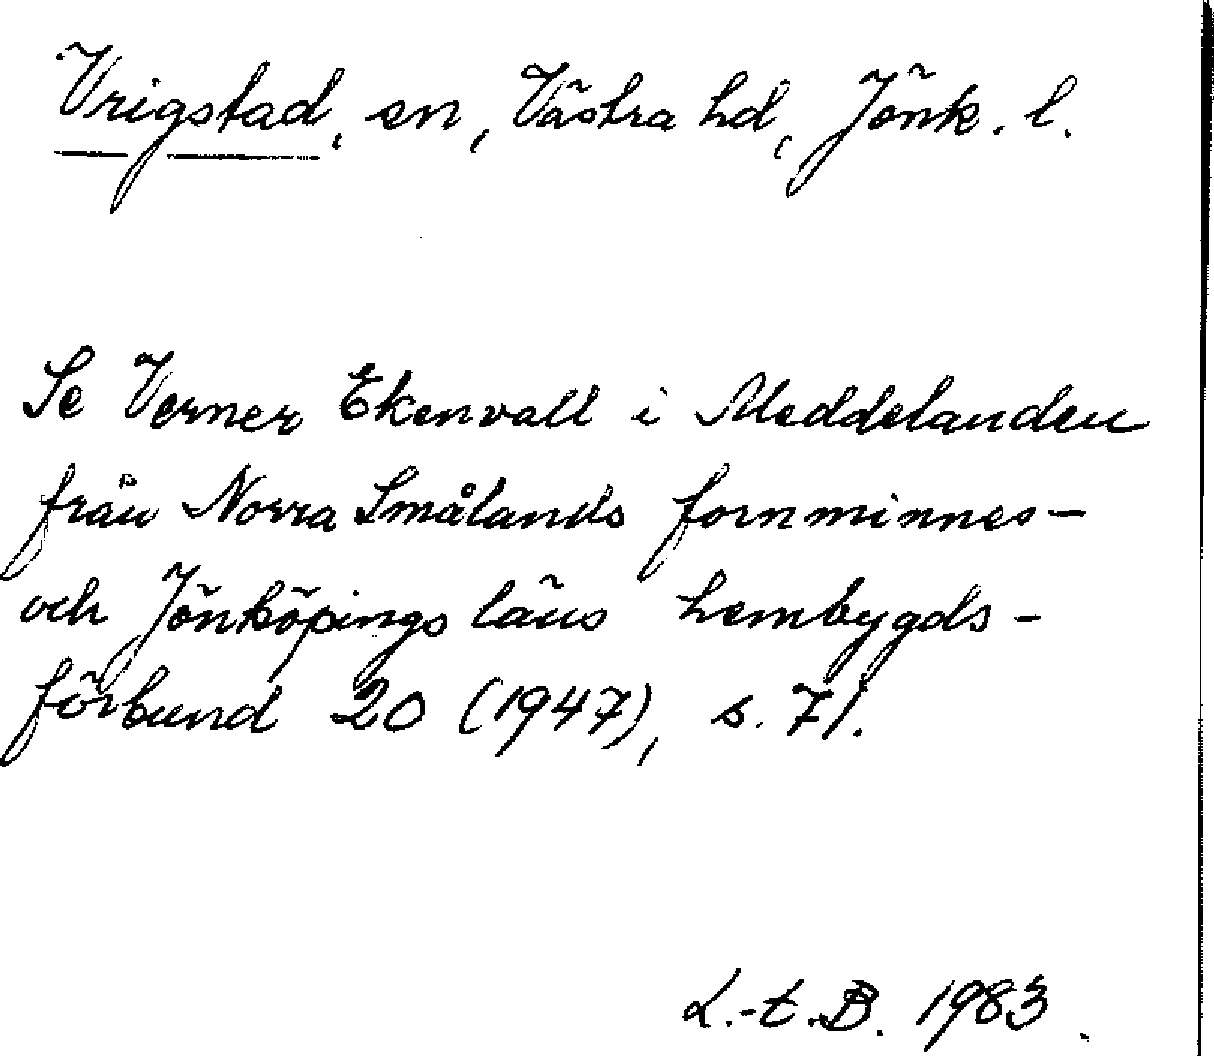 Vrigstad, sn, Västra hd, Jönk. l.
Se Verner Ekenvall i Meddelanden
från Norra Smålands fornminnes-
och Jönköpings läns hembygds-
förbund 20 (1947), s. 71.
L.-t.B. 1983.